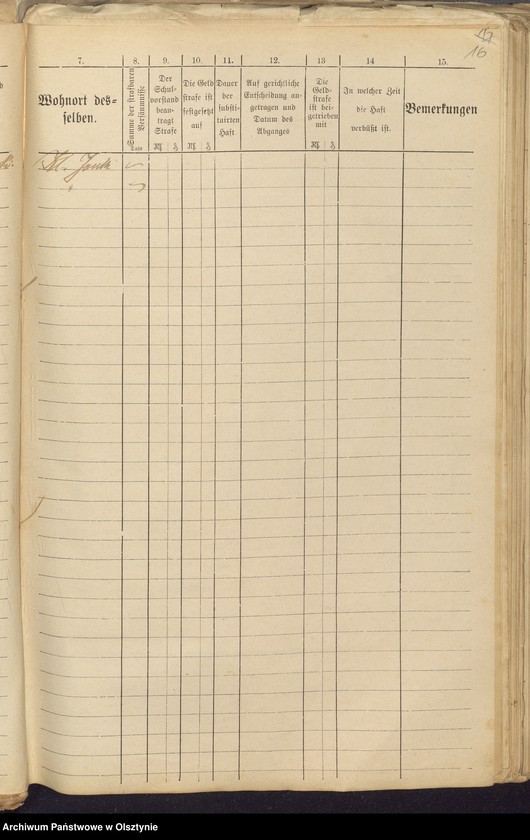 16
7.
8.
9.
10.
11.
12.
13
14
15.
Wohnort des=
selben.
Summe der strafbaren
Versäumnisse
Der
Schul=
vorstand
bean=
tragt
Strafe
Die Geld
strafe ist
festgesetzt
auf
Dauer
der
substi=
tuirten
Haft
Auf gerichtliche
Entscheidung an=
getragen und
Datum des
Abganges
Die
Geld=
strafe
ist bei=
getrieben
mit
In welcher Zeit
die Haft
verbüßt ist.
Bemerkungen
Archiwum Państwowe w Olsztynie